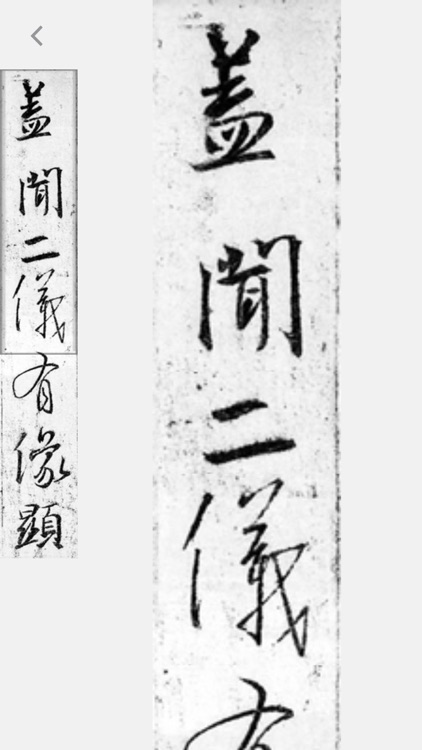 盖聞二儀有像顯
盖聞二儀有